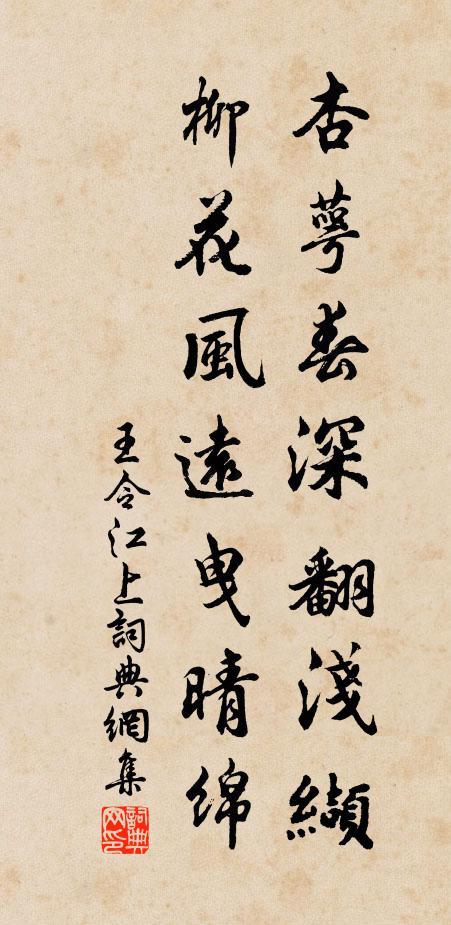 杏萼春深翻淺纈
柳花風遠曳晴綿
王令江上詞典網集
詞典网印